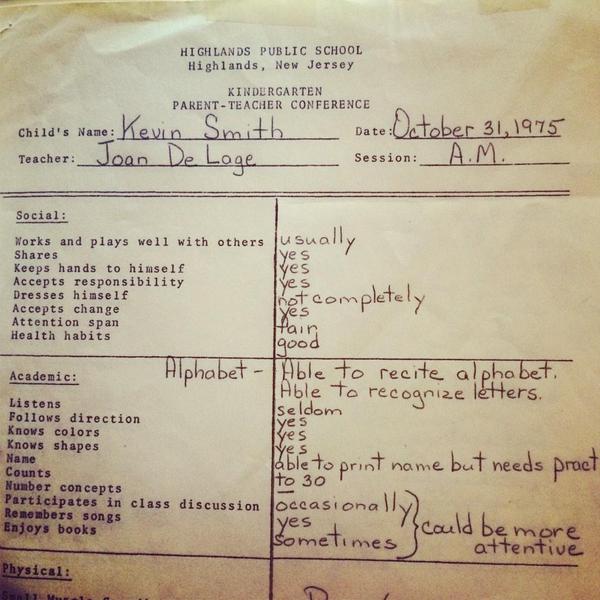 HIGHLANDS PUBLIC SCHOOL
Highlands, New Jersey
KINDERGARTEN
PARENT-TEACHER CONFERENCE
Child's Name: Kevin Smith Date: October 31, 1975
Teacher: Joan De Loge Session: A.M.
Social:
Works and plays well with others usually
Shares yes
Keeps hands to himself yes
Accepts responsibility yes
Dresses himself not completely
Accepts change yes
Attention span fair
Health habits good
Academic: Alphabet - Able to recite alphabet.
Able to recognize letters.
Listens seldom
Follows direction yes
Knows colors yes
Knows shapes yes
Name able to print name but needs pract
Counts to 30
Number concepts
Participates in class discussion occasionally
Remembers songs yes could be more
Enjoys books sometimes attentive
Physical:
Small Muscle